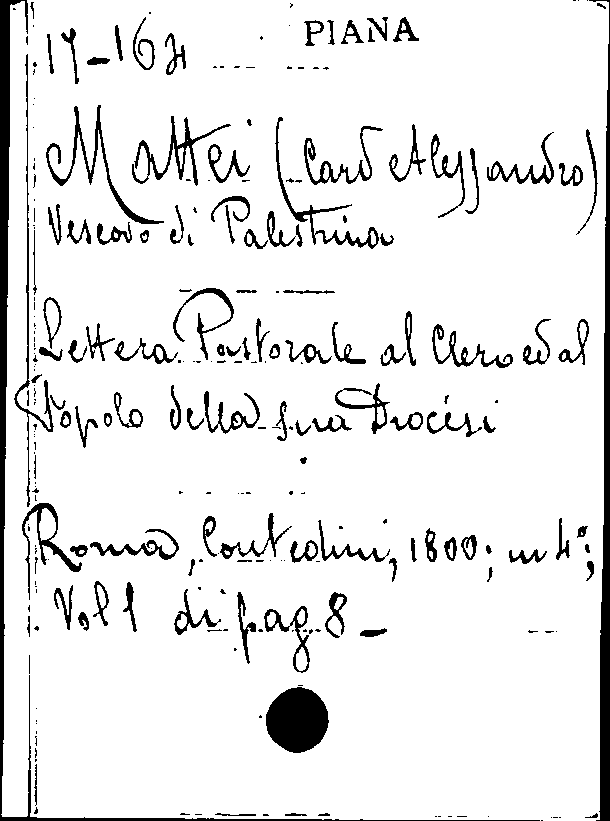 PIANA
17-164
Mattei (Card Alessandro)
Vescovo di Palestrina
Lettera Pastorale al Clero ed al
Popolo della sua Diocesi
Roma, Contedini, 1800; in 4°;
Vol 1 di pag 8_